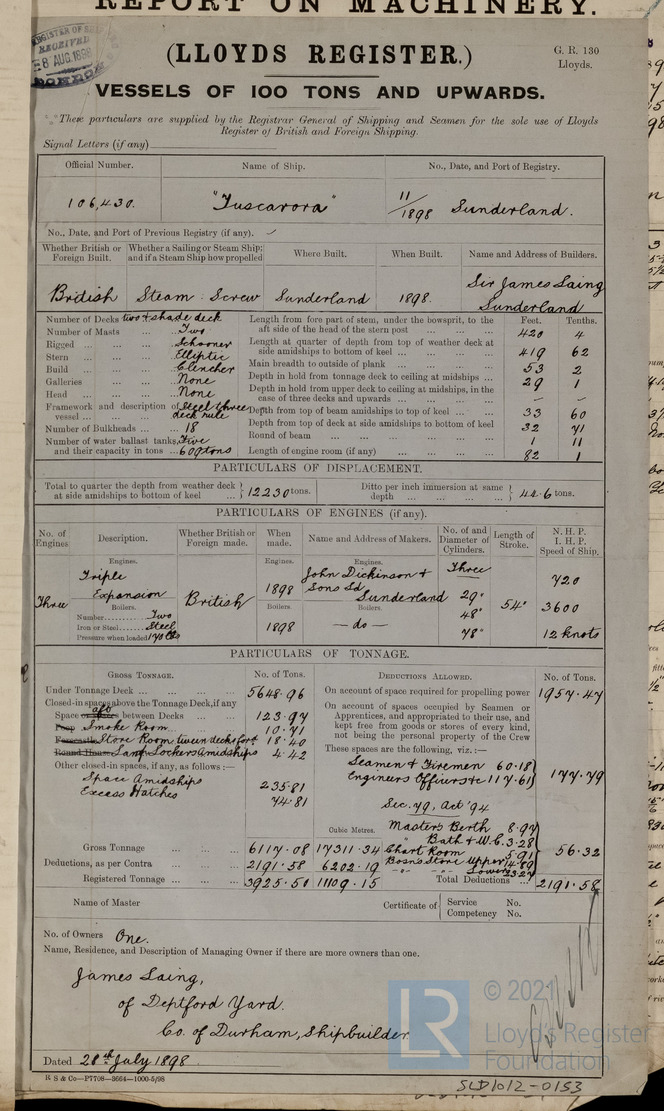 REPORT ON MACHINERY.
REGISTER OF
RECEIVED
8 AUG. 1898
(LLOYDS REGISTER.)
G. R. 130
Lloyds.
VESSELS OF 100 TONS AND UPWARDS.
These particulars are supplied by the Registrar General of Shipping and Seamen for the sole use of Lloyds
Register of British and Foreign Shipping.
Signal Letters (if any)
Official Number. Name of Ship. No., Date, and Port of Registry.
106,430. "Tuscarora" 11/1898 Sunderland.
No., Date, and Port of Previous Registry (if any).
Whether British or Foreign Built. Whether a Sailing or Steam Ship; and if a Steam Ship how propelled Where Built. When Built. Name and Address of Builders.
British Steam Screw Sunderland 1898. Sir James Laing
Sunderland
Number of Decks two & shade deck
Number of Masts ... Two
Rigged ... Schooner
Stern ... Elliptic
Build ... Clencher
Galleries ... None
Head ... None
Framework and description of vessel ... Steel three deck rule
Number of Bulkheads ... 18
Number of water ballast tanks, Five
and their capacity in tons ... 609 tons
Feet. Tenths.
Length from fore part of stem, under the bowsprit, to the aft side of the head of the stern post 420 4
Length at quarter of depth from top of weather deck at side amidships to bottom of keel 419 62
Main breadth to outside of plank 53 2
Depth in hold from tonnage deck to ceiling at midships 29 1
Depth in hold from upper deck to ceiling at midships, in the case of three decks and upwards – –
Depth from top of beam amidships to top of keel 33 60
Depth from top of deck at side amidships to bottom of keel 32 71
Round of beam 1 11
Length of engine room (if any) 82 1
PARTICULARS OF DISPLACEMENT.
Total to quarter the depth from weather deck at side amidships to bottom of keel 12230 tons. Ditto per inch immersion at same depth 44.6 tons.
PARTICULARS OF ENGINES (if any).
No. of Engines Description. Whether British or Foreign made. When made. Name and Address of Makers. No. of and Diameter of Cylinders. Length of Stroke. N. H. P. I. H. P. Speed of Ship.
Engines. Engines. Engines.
Three Triple Expansion British 1898 John Dickinson & Sons Ld Sunderland Three 29" 48" 78" 54" 720 3600 12 knots
Boilers. Boilers. Boilers.
Number Two
Iron or Steel Steel
Pressure when loaded 170 lbs
1898 – do –
PARTICULARS OF TONNAGE.
GROSS TONNAGE. No. of Tons. DEDUCTIONS ALLOWED. No. of Tons.
Under Tonnage Deck 5648.96
Closed-in spaces above the Tonnage Deck, if any
Space between Decks 123.97
Smoke Room 10.71
Store Room tween decks fort 18.40
Round House Lamp Lockers Amidships 4.42
Other closed-in spaces, if any, as follows :—
Space Amidships 235.81
Excess Hatches 74.81
Cubic Metres.
Gross Tonnage 6117.08 17311.34
Deductions, as per Contra 2191.58 6202.19
Registered Tonnage 3925.50 11109.15
On account of space required for propelling power 1957.47
On account of spaces occupied by Seamen or
Apprentices, and appropriated to their use, and
kept free from goods or stores of every kind,
not being the personal property of the Crew
These spaces are the following, viz. :—
Seamen & Firemen 60.18
Engineers Officers &c 117.61 177.79
Sec. 79, Act '94
Masters Berth 8.97
Bath & W.C. 3.28
Chart Room 5.91
Bosns Store Upper 14.89
" " Lower 23.27
56.32
Total Deductions 2191.58
Name of Master Certificate of Service No.
Competency No.
No. of Owners One.
Name, Residence, and Description of Managing Owner if there are more owners than one.
James Laing,
of Deptford Yard.
Co. of Durham, Shipbuilder
Dated 28th July 1898
R S & Co—P7708—3664—1000-5/98
LR
© 2021
Lloyd's Register
Foundation
SLD1012-0153